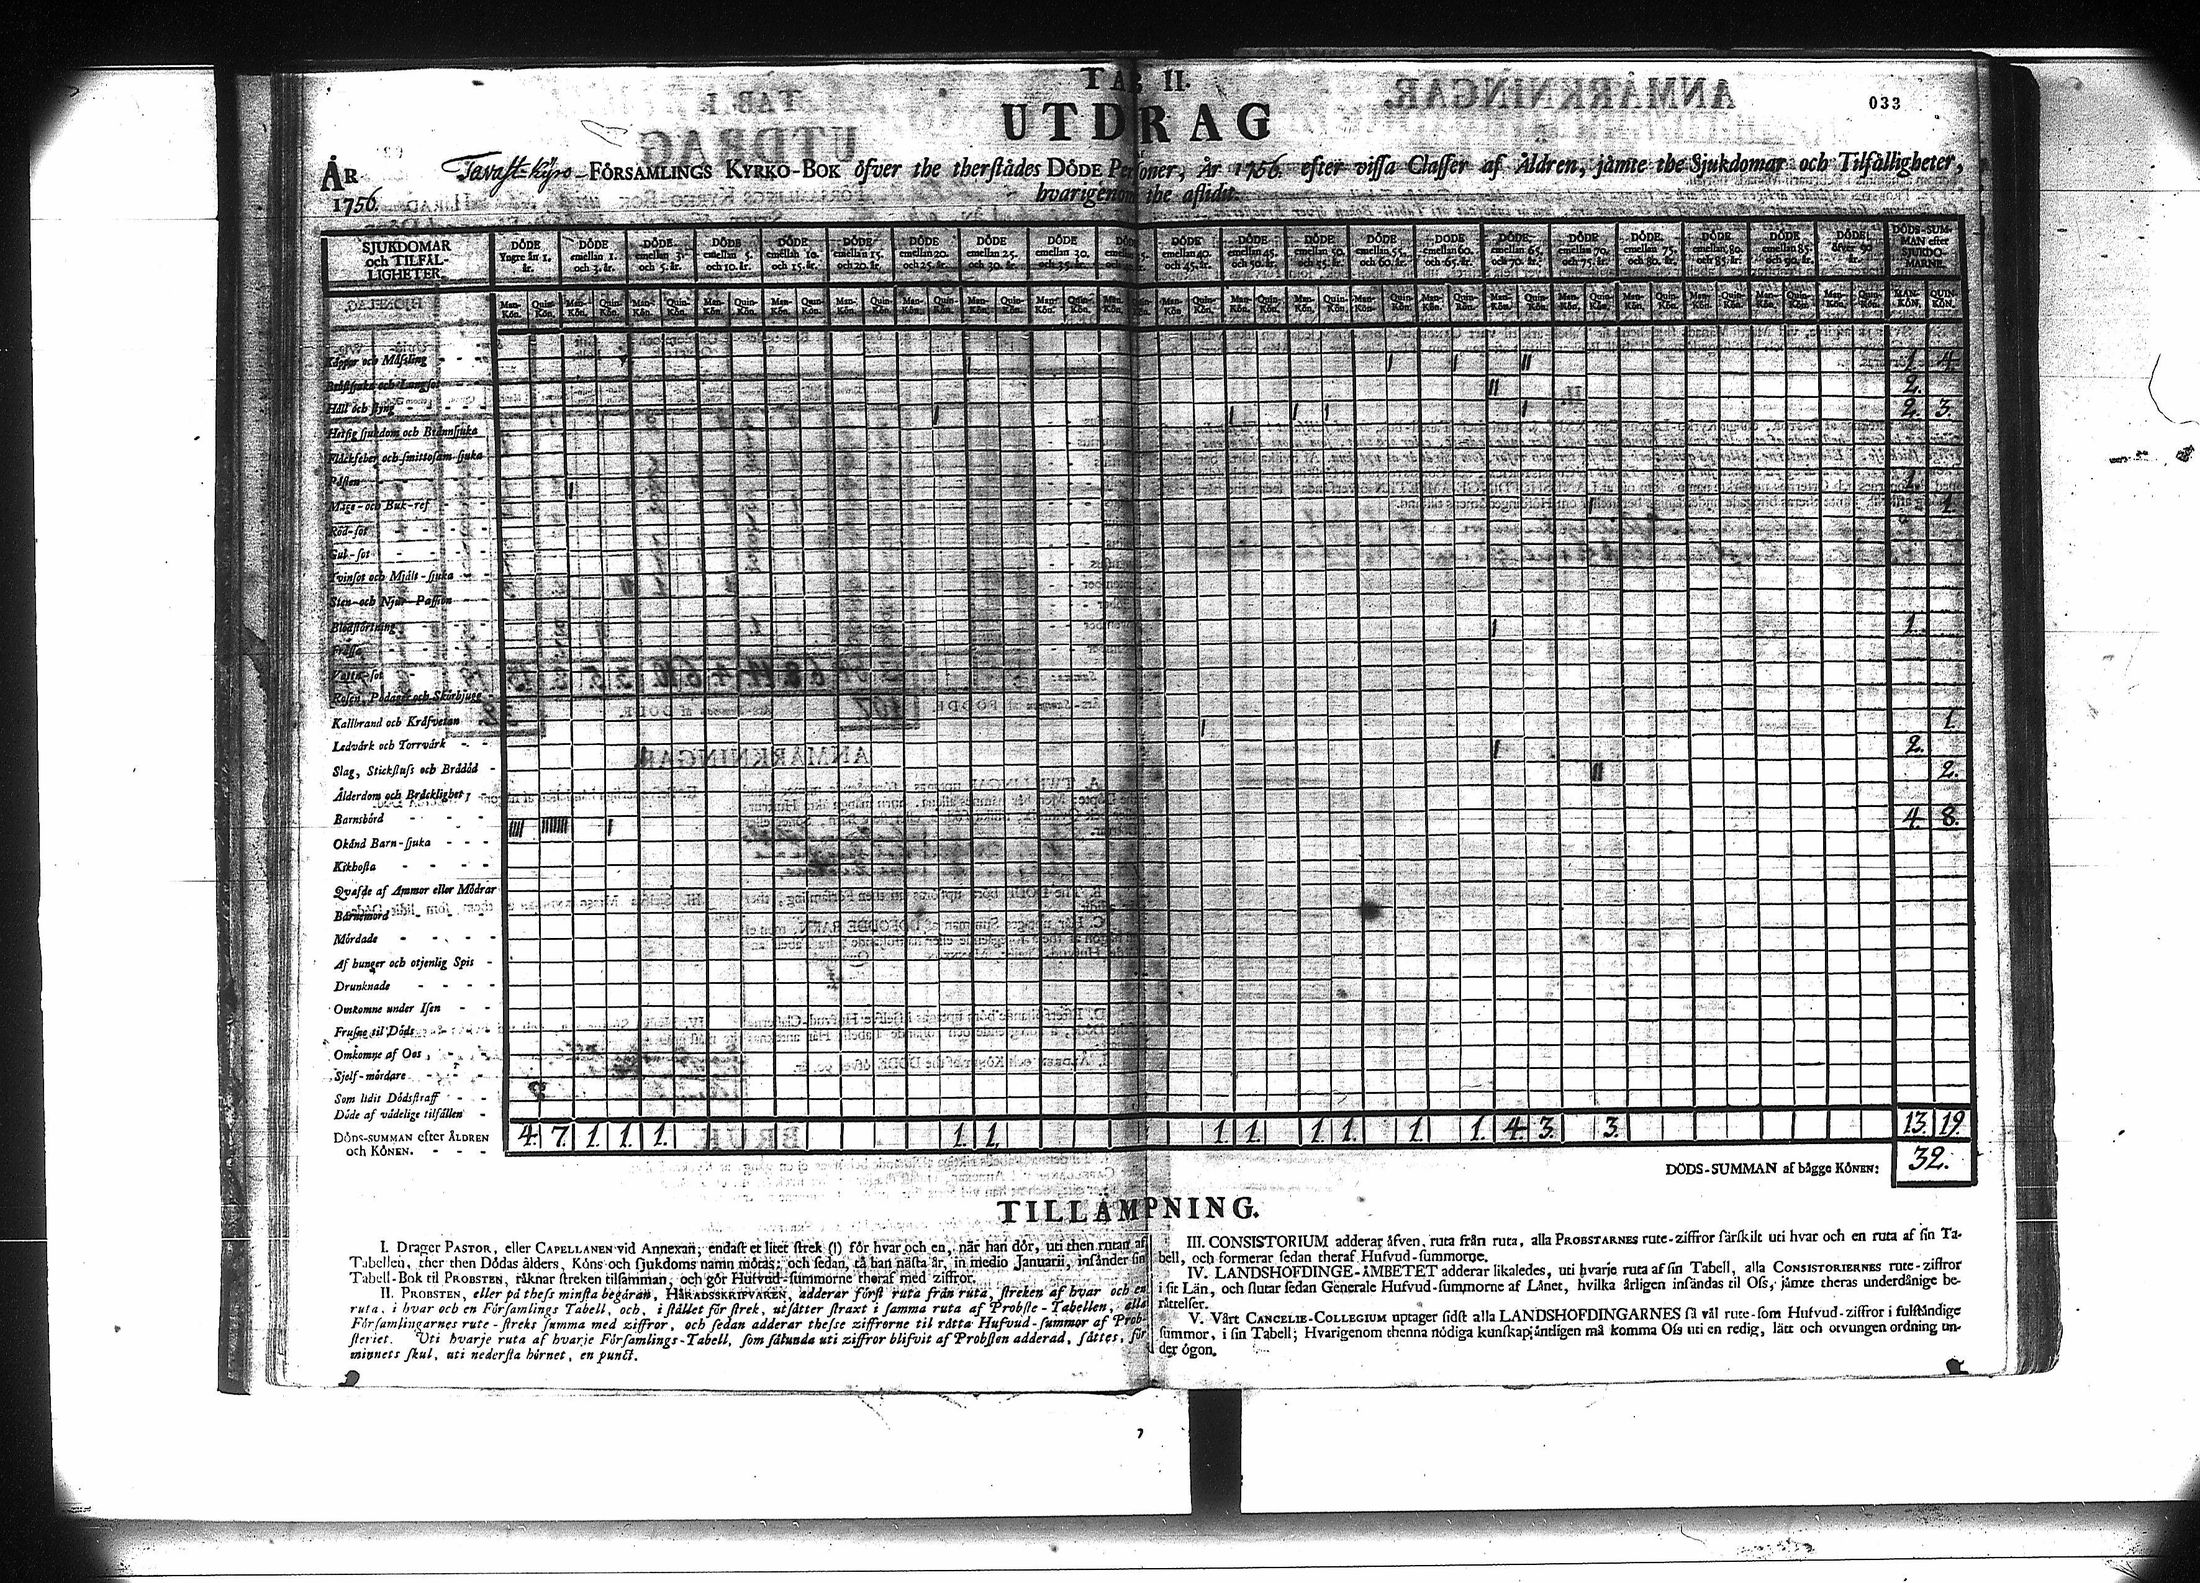 033
TAB. II.
UTDRAG
ÅR
1756.
Tavast-Kyro-FÖRSAMLINGS KYRKO-BOK öfver the therstädes DÖDE Personer, År 1756. efter vissa Classer af Åldren, jämte the Sjukdomar och Tilfälligheter,
hvarigenom the aflidit.
SJUKDOMAR och TILFÄL-LIGHETER.
DÖDE Yngre än 1. år.
DÖDE emellan 1. och 3. år.
DÖDE emellan 3. och 5. år.
DÖDE emellan 5. och 10. år.
DÖDE emellan 10. och 15. år.
DÖDE emellan 15. och 20. år.
DÖDE emellan 20. och 25. år.
DÖDE emellan 25. och 30. år.
DÖDE emellan 30. och 35. år.
DÖDE emellan 40. och 45. år.
DÖDE emellan 45. och 50. år.
DÖDE emellan 50. och 55. år.
DÖDE emellan 55. och 60. år.
DÖDE emellan 60. och 65. år.
DÖDE emellan 65. och 70. år.
DÖDE emellan 70. och 75. år.
DÖDE emellan 75. och 80. år.
DÖDE emellan 80. och 85. år.
DÖDE emellan 85. och 90. år.
DÖDE öfver 90 år.
DÖDS-SUM-MAN efter SJUKDO-MARNE.
MAN-KÖN. QUIN-KÖN.
Koppor och Mässling - - - 1. 4.
Bröstsjuka och Lungsot 2.
Håll och styng - - - - 2. 3.
Hetsig sjukdom och Brännsjuka
Fläckfeber och smittosam sjuka
Påsten 1.
Mage- och Buk-ref 1.
Röd-sot
Gul-sot
Tvinsot och Mjält-sjuka
Sten- och Njur-Passion
Blodstörtning 1.
Frässa
Vattu-sot
Rosen, Podager och Skörbjugg
Kallbrand och Kräfvetan 1.
Ledvärk och Torrvärk - - 2.
Slag, Stickfluss och Brådöd - 2.
Ålderdom och Bräcklighet,
Barnsbörd - - - - 4. 8.
Okänd Barn-sjuka - - -
Kikhosta - - - -
Qvafde af Ammor eller Mödrar
Barnemord
Mördade - - - -
Af hunger och otjenlig Spis -
Drunknade - - - -
Omkomne under Isen - -
Frusne til Döds
Omkomne af Oos,
Sjelf-mördare - - -
Som lidit Dödsstraff - -
Döde af vådelige tilfällen -
DÖDS-SUMMAN efter ÅLDREN
och KÖNEN. - - - 4. 7. 1. 1. 1. 1. 1. 1. 1. 1. 1. 1. 1. 4. 3. 3. 13. 19.
DÖDS-SUMMAN af bägge KÖNEN: 32.
TILLÄMPNING.
I. Drager PASTOR, eller CAPELLANEN vid Annexan; endast et litet strek (I) för hvar och en, när han dör, uti then rutan af
Tabellen, ther then Dödas ålders, Köns och sjukdoms namn mötas; och sedan, tå han nästa år, in medio Januarii, insänder sin
Tabell-Bok til PROBSTEN, räknar streken tilsamman, och gör Hufvud-summorne theraf med ziffror.
II. PROBSTEN, eller på thess minsta begäran, HÄRADSSKRIFVAREN, adderar först ruta från ruta, streken af hvar och en
ruta, i hvar och en Församlings Tabell, och, i stället för strek, utsätter straxt i samma ruta af Probste-Tabellen, alla
Församlingarnes rute-streks summa med ziffror, och sedan adderar thesse ziffrorne til rätta Hufvud-summor af Prob-
steriet. Uti hvarje ruta af hvarje Församlings-Tabell, som sålunda uti ziffror blifvit af Probsten adderad, sättes, för
minnets skul, uti nedersta hörnet, en punct.
III. CONSISTORIUM adderar äfven, ruta från ruta, alla PROBSTARNES rute-ziffror särskilt uti hvar och en ruta af sin Ta-
bell, och formerar sedan theraf Hufvud-summorne.
IV. LANDSHOFDINGE-ÄMBETET adderar likaledes, uti hvarje ruta af sin Tabell, alla CONSISTORIERNES rute-ziffror
i sit Län, och slutar sedan Generale Hufvud-summorne af Länet, hvilka årligen insändas til Oss, jämte theras underdånige be-
rättelser.
V. Vårt CANCELIE-COLLEGIUM uptager sidst alla LANDSHOFDINGARNES så väl rute-som Hufvud-ziffror i fulständige
summor, i sin Tabell; Hvarigenom thenna nödiga kunskap ändtligen må komma Oss uti en redig, lätt och otvungen ordning un-
der ögon.